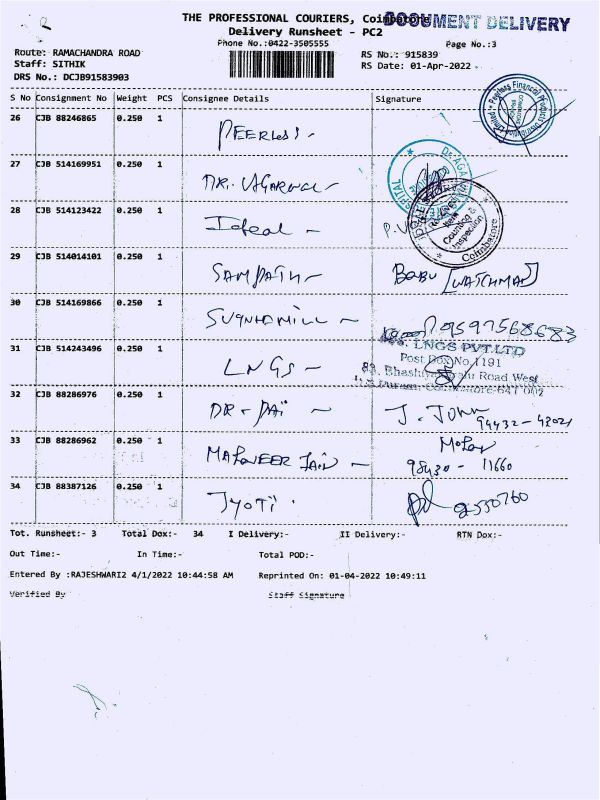 THE PROFESSIONAL COURIERS, Coimbatore
DOCUMENT DELIVERY
Delivery Runsheet - PC2
Phone No.:0422-3505555
Page No.:3
Route: RAMACHANDRA ROAD
RS No.: 915839
Staff: SITHIK
RS Date: 01-Apr-2022
DRS No.: DCJB91583903
S No Consignment No Weight PCS Consignee Details Signature
26 CJB 88246865 0.250 1 PEERLESS
27 CJB 514169951 0.250 1 DR. AGARWAL
28 CJB 514123422 0.250 1 Ideal
29 CJB 514014101 0.250 1 SAMPATH BABU [WATCHMAN]
30 CJB 514169866 0.250 1 9597568683
31 CJB 514243496 0.250 1 LNGS
LNGS PVT.LTD
Post Box No.1191
Road West
32 CJB 88286976 0.250 1 DR. PAI J. JOHN
94432-42021
33 CJB 88286962 0.250 1 MAHAVEER JAIN Mohan
98430 - 11660
34 CJB 88387126 0.250 1 JYOTI
Tot. Runsheet:- 3 Total Dox:- 34 I Delivery:- II Delivery:- RTN Dox:-
Out Time:- In Time:- Total POD:-
Entered By :RAJESHWARI2 4/1/2022 10:44:58 AM Reprinted On: 01-04-2022 10:49:11
Verified By Staff Signature